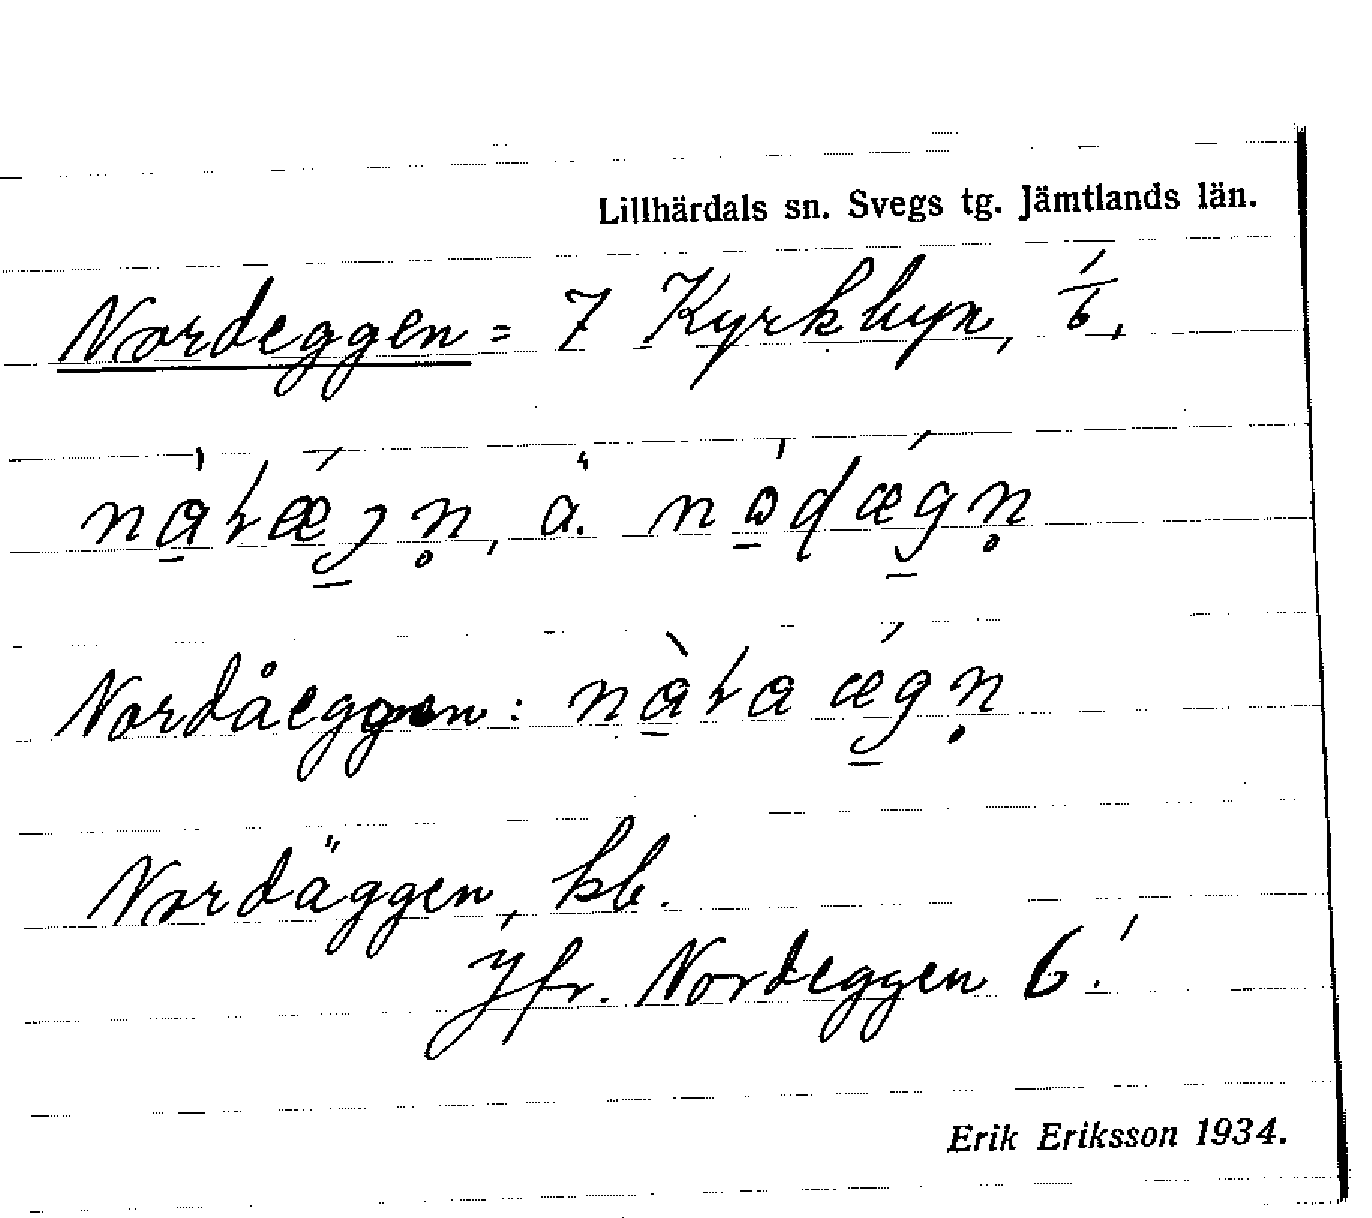 Lillhärdals sn. Svegs tg. Jämtlands län.
Nordeggen = 7 Kyrkbyn, 1/6.
Nordåeggen:
Nordäggen, kb.
Jfr. Nordeggen 6!
Erik Eriksson 1934.